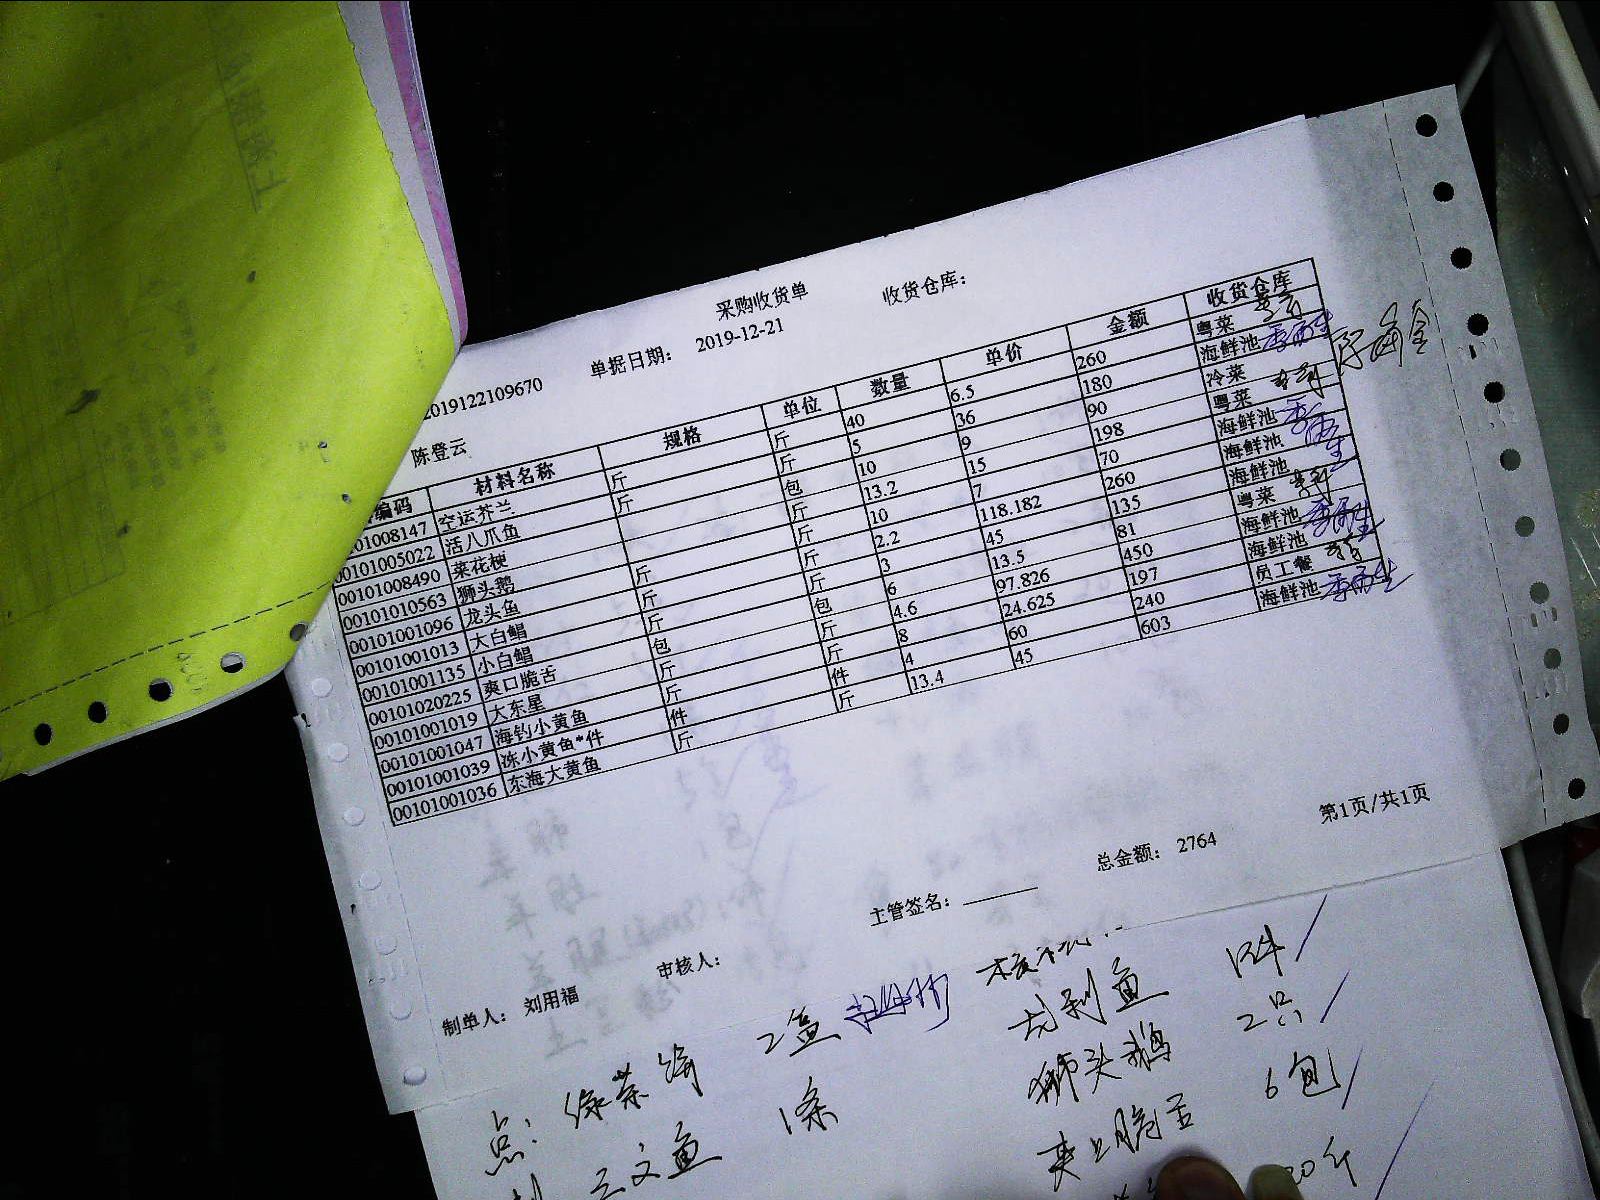 采购收货单
2019122109670 单据日期： 2019-12-21 收货仓库：
陈登云
编码 材料名称 规格 单位 数量 单价 金额 收货仓库
101008147 空运芥兰 斤 斤 40 6.5 260 粤菜
00101005022 活八爪鱼 斤 斤 5 36 180 海鲜池
00101008490 菜花梗 包 10 9 90 冷菜
00101010563 狮头鹅 斤 13.2 15 198 粤菜
00101001096 龙头鱼 斤 斤 10 7 70 海鲜池
00101001013 大白鲳 斤 斤 2.2 118.182 260 海鲜池
00101001135 小白鲳 斤 斤 3 45 135 海鲜池
00101020225 爽口脆舌 包 包 6 13.5 81 粤菜
00101001019 大东星 斤 斤 4.6 97.826 450 海鲜池
00101001047 海钓小黄鱼 斤 斤 8 24.625 197 海鲜池
00101001039 冻小黄鱼*件 件 件 4 60 240 员工餐
00101001036 东海大黄鱼 斤 斤 13.4 45 603 海鲜池
第1页/共1页
总金额： 2764
主管签名：
审核人：
制单人： 刘用福
点： 2盒
龙利鱼
狮头鹅 2只
三文鱼 1条
爽口脆舌 6包